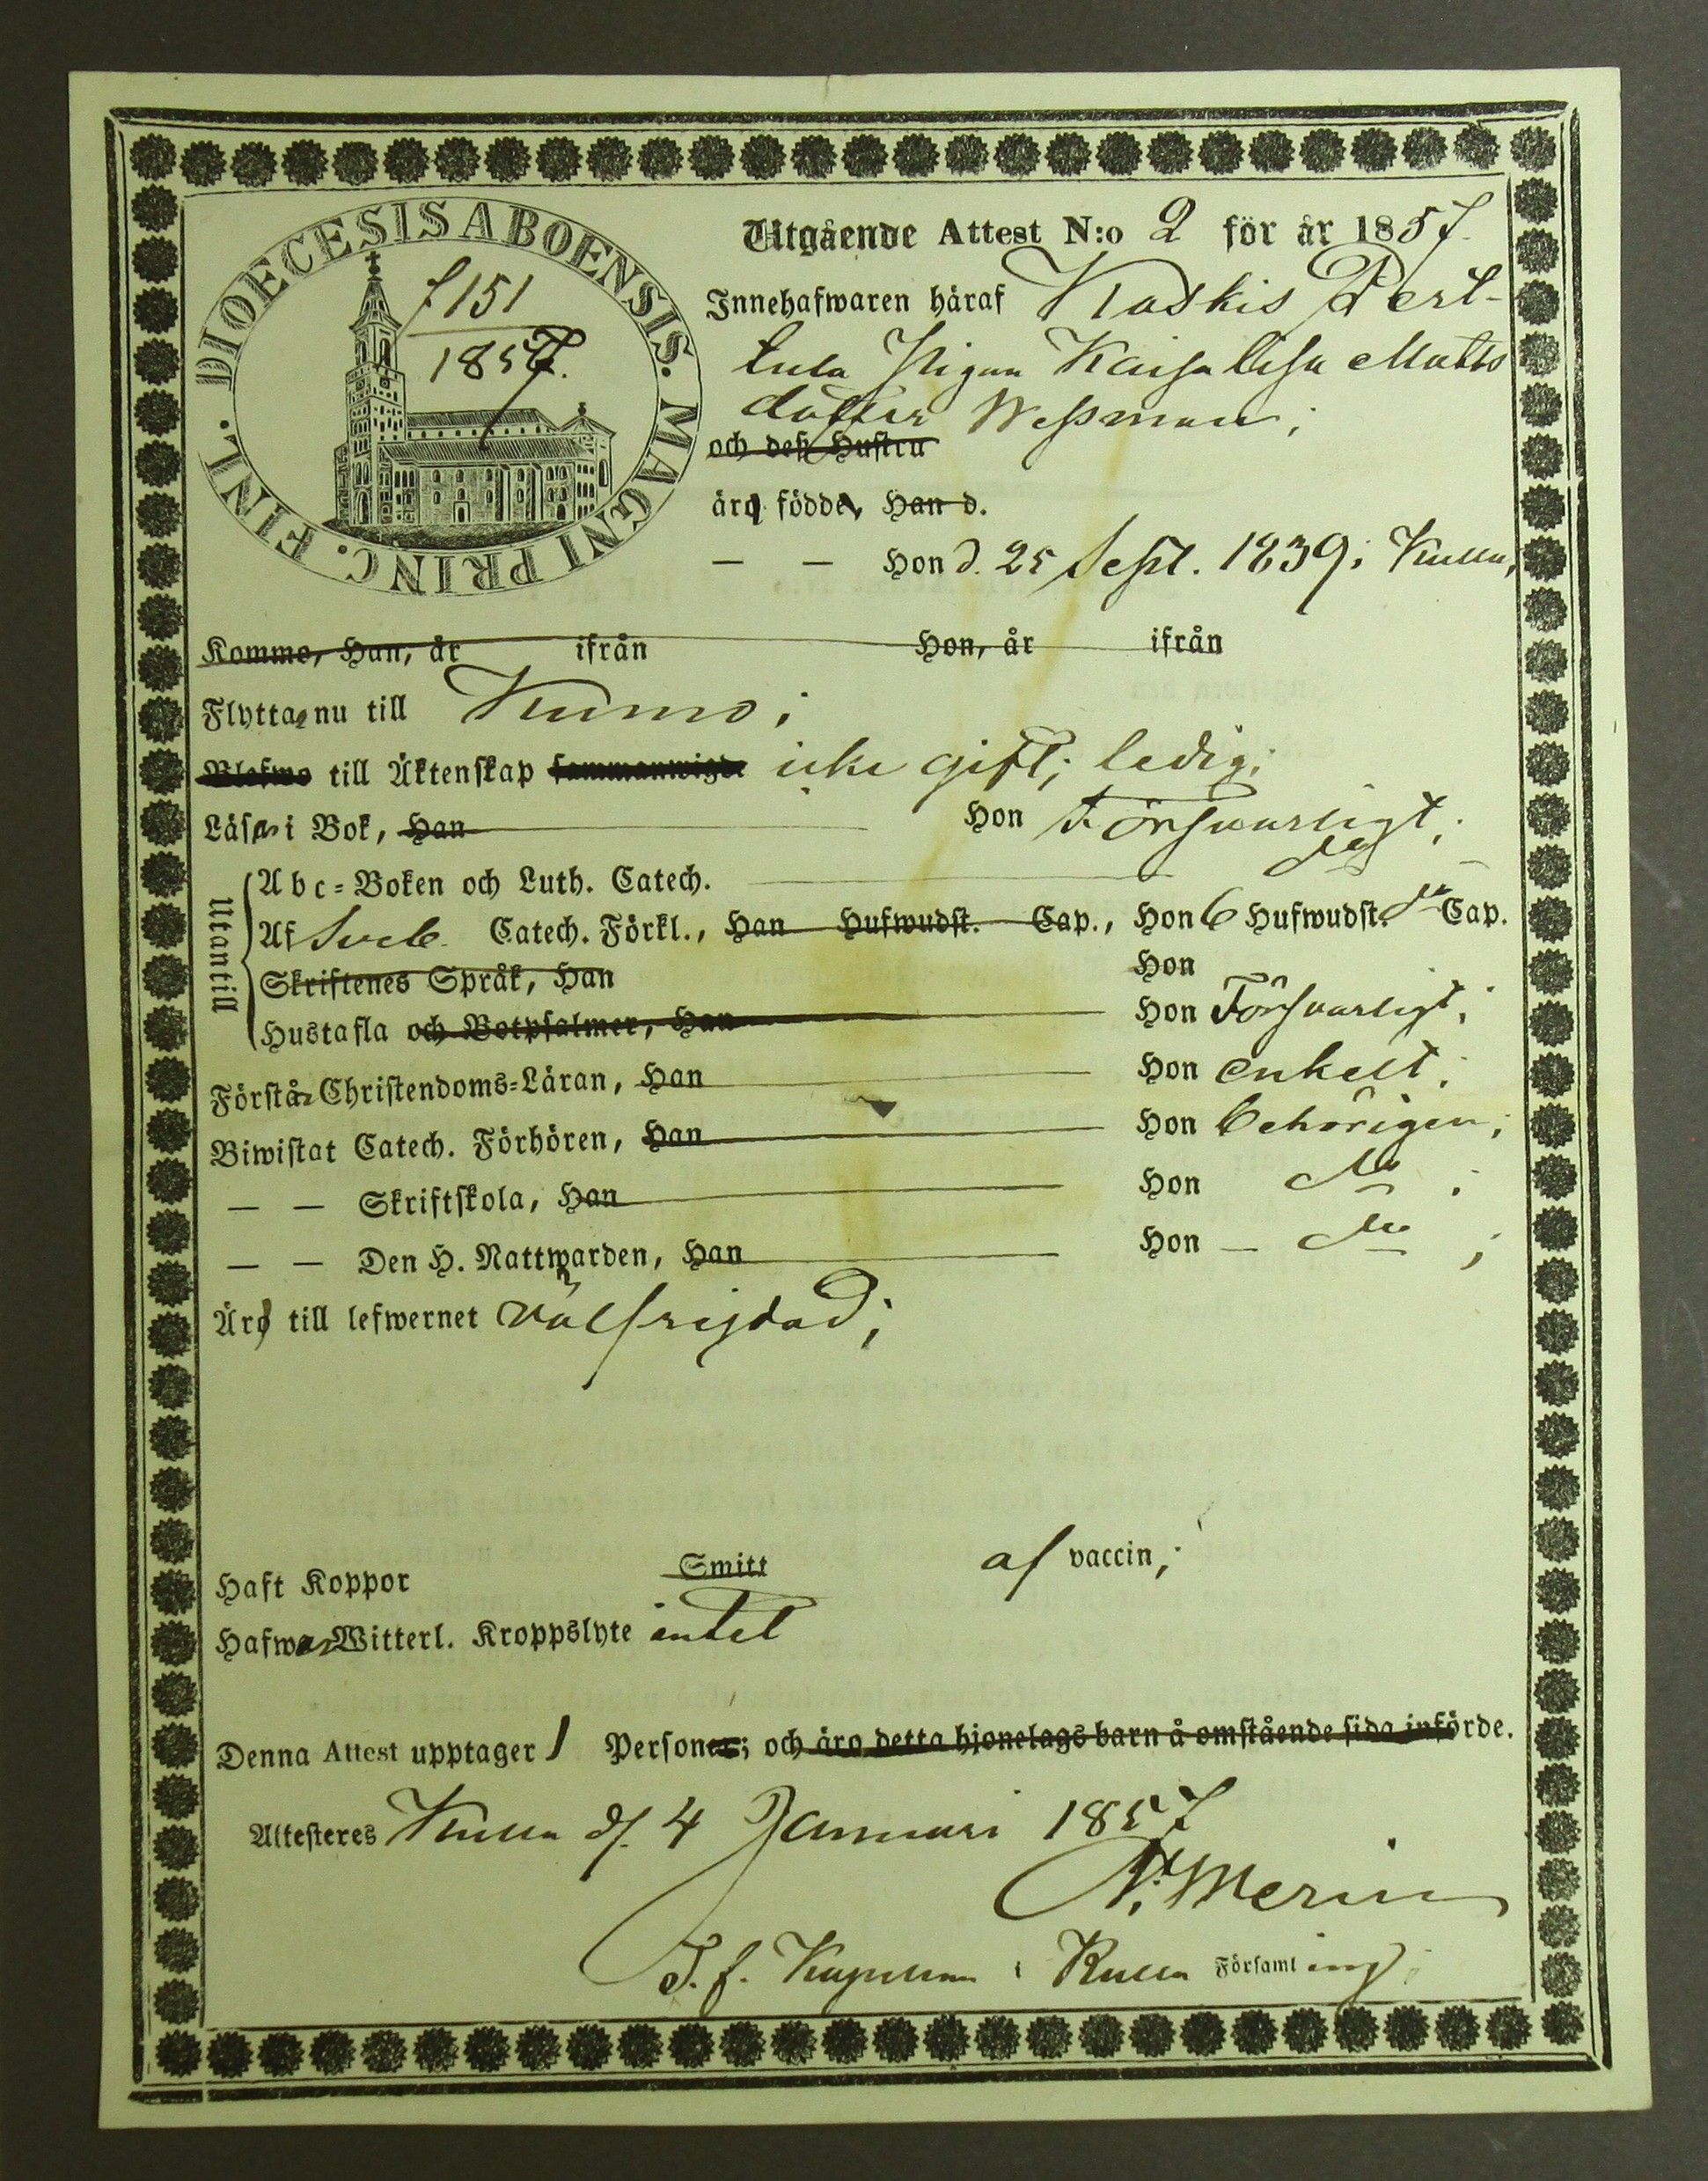 DIOECESIS ABOENSIS. MAGNI PRINC. FINL.
f 151
1857.
Utgående Attest N:o 2 för år 1857.
Innehafwaren häraf Koskis Pert-
tula Pigan Kaisa Lisa Matts
dotter Wessman;
och deß Hustru
äro födde, Han d.
— — Hon d. 25 Sept. 1839 i Kulla,
Kommo, Han, år ifrån Hon, år ifrån
Flyttar nu till Kumo;
Blefwo till Äktenskap sammanwigde icke gift; ledig;
Läser i Bok, Han Hon Försvarligt;
Utantill
Abc-Boken och Luth. Catech. d:o
Af Sveb. Catech. Förkl., Han Hufwudst. Cap., Hon 6 Hufwudst. Cap.
Skriftenes Språk, Han Hon
Hustafla och Botpsalmer, Han Hon Försvarligt;
Förstår Christendoms-Läran, Han Hon enkelt;
Biwistat Catech. Förhören, Han Hon behörigen;
— — Skriftskola, Han Hon d:o;
— — Den H. Nattwarden, Han Hon — d:o;
Äro till lefwernet välfrejdad;
Haft Koppor Smitt af vaccin;
Hafwer Witterl. Kroppslyte intet
Denna Attest upptager 1 Personer; och äro detta hjonelags barn å omstående sida införde.
Attesteres Kulla d. 4 Januari 1857
N. Merin
T. f. Kapellan i Kulla Församling;